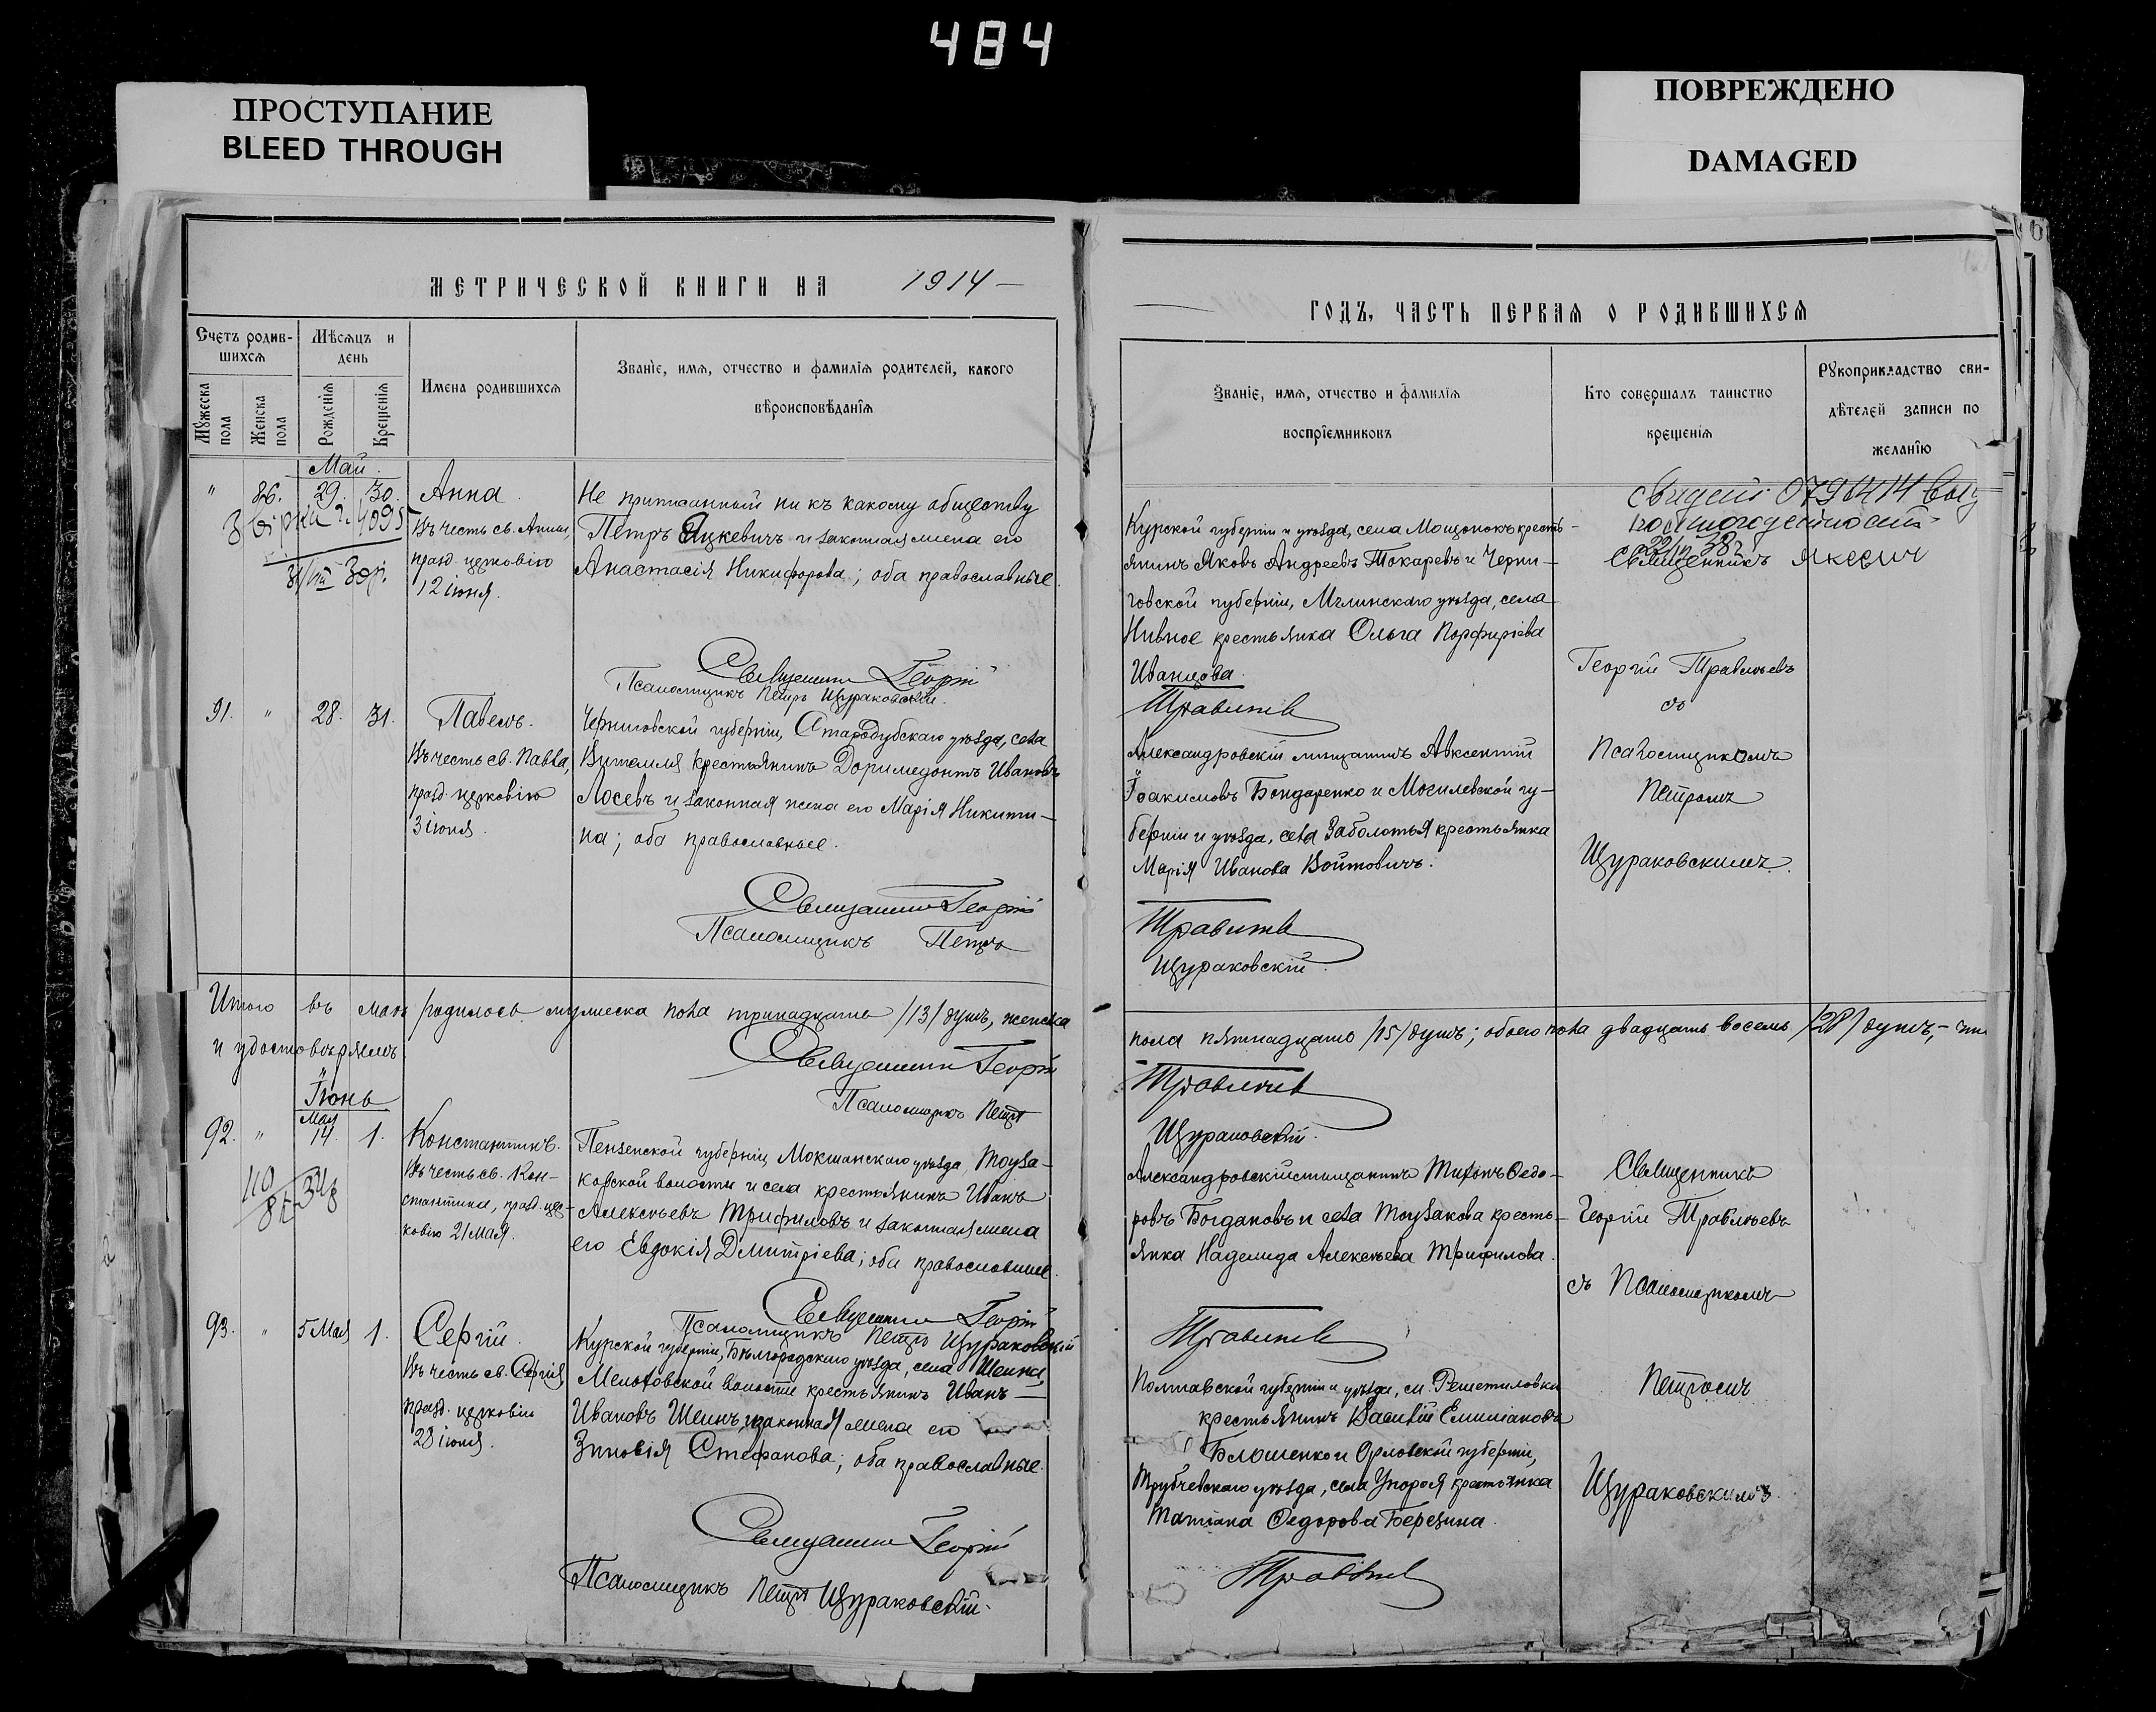 484
ПРОСТУПАНИЕ
BLEED THROUGH
ПОВРЕЖДЕНО
DAMAGED
МЕТРИЧЕСКОЙ КНИГИ НА 1914 —
Счетъ родив-
шихся
Мѣсяцъ и
день
Мужеска пола
Женска пола
Рожденія
Крещенія
Имена родившихся
Званіе, имя, отчество и фамилія родителей, какого
вѣроисповѣданія
Май.
" 86. 29. 30. Анна.
Въ честь св. Анны,
празд. церковію
12 іюня.
Не приписанный ни къ какому обществу
Петръ Яцкевичъ и законная жена его
Анастасія Никифорова; оба православные.
Священникъ Георгій
Псаломщикъ Петръ Щураковскій.
91. " 28. 31. Павелъ.
Въ честь св. Павла,
празд. церковію
3 іюня.
Черниговской губерніи, Стародубскаго уѣзда, села
Витемля крестьянинъ Доримедонтъ Ивановъ
Лосевъ и законная жена его Марія Никити-
на; оба православные.
Священникъ Георгій
Псаломщикъ Петръ
Итого въ маѣ родилось мужеска пола тринадцать /13/ душъ, женска
и удостовѣряемъ.
Священникъ Георгій
Псаломщикъ Петръ
Іюнь
92. " Мая 14. 1. Константинъ.
Въ честь св. Кон-
стантина, празд. цер-
ковію 21 мая.
Пензенской губерніи, Мокшанскаго уѣзда,
волости и села крестьянинъ Иванъ
Алексѣевъ Трифиловъ и законная жена
его Евдокія Димитріева; оба православные.
Священникъ Георгій
Псаломщикъ Петръ Щураковскій
93. " 5 Мая 1. Сергій.
Въ честь св. Сергія
празд. церковію
28 іюня.
Курской губерніи, Бѣлгородскаго уѣзда, села Шеина,
Мелаховской волости крестьянинъ Иванъ —
Ивановъ Шеинъ и законная жена его
Зиновія Стефанова; оба православные.
Священникъ Георгій
Псаломщикъ Петръ Щураковскій.
ГОДЪ, ЧАСТЬ ПЕРВАЯ О РОДИВШИХСЯ
Званіе, имя, отчество и фамилія
воспріемниковъ
Кто совершалъ таинство
крещенія
Рукоприкладство сви-
дѣтелей записи по
желанію
Курской губерніи и уѣзда, села Мощонокъ кресть-
янинъ Яковъ Андреевъ Токаревъ и Черни-
говской губерніи, Мглинскаго уѣзда, села
Нивное крестьянка Ольга Порфиріева
Иванцова.
Травлѣевъ
Священникъ
Георгій Травлѣевъ
съ
Александровскій мѣщанинъ Авксентій
Іоакимовъ Бондаренко и Могилевской гу-
берніи и уѣзда, села Заболотья крестьянка
Марія Иванова Войтовичъ.
Травлѣевъ
Щураковскій.
Псаломщикомъ
Петромъ
Щураковскимъ.
пола пятнадцать /15/ душъ; обоего пола двадцать восемь /28/ душъ, - что
Травлѣевъ
Щураковскій.
Александровскій мѣщанинъ Тихонъ Ѳедо-
ровъ Богдановъ и села кресть-
янка Надежда Алексѣева Трифилова.
Травлѣевъ
Священникъ
Георгій Травлѣевъ
съ Псаломщикомъ
Полтавской губерніи и уѣзда, м. Решетиловки
крестьянинъ Василій Емиліановъ
Блошенко и Орловской губерніи,
Трубчевскаго уѣзда, села Упороя крестьянка
Татіана Ѳедорова Березина.
Травлѣевъ
Петромъ
Щураковскимъ.